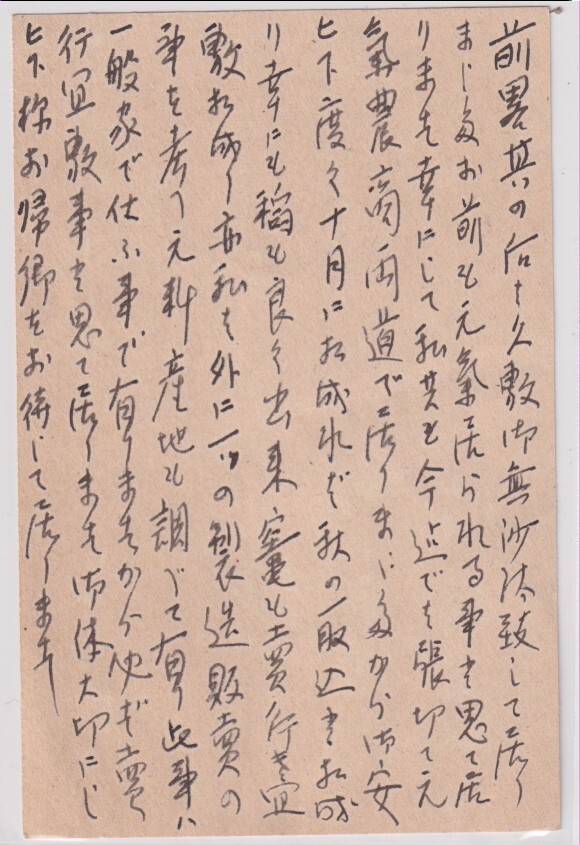 前畧其の后は久敷御無沙汰致して居り
ましたお前も元氣居られる事と思て居
りますを幸にして私共も今迄でを張切て元
氣農商両道で居りましたから御安
心下度く十月に相成れば秋の取込と相成
り幸にも稲も良く出来 も賣行き宜
敷相成り亦私は外に一つの製造販賣の
事を考へ元料産地も調べて有り此事は
一般家で仕ふ事で有りますから必ず賣
行宜敷事と思て居りますを御体大切にし
と下様お帰郷をお待して居ります